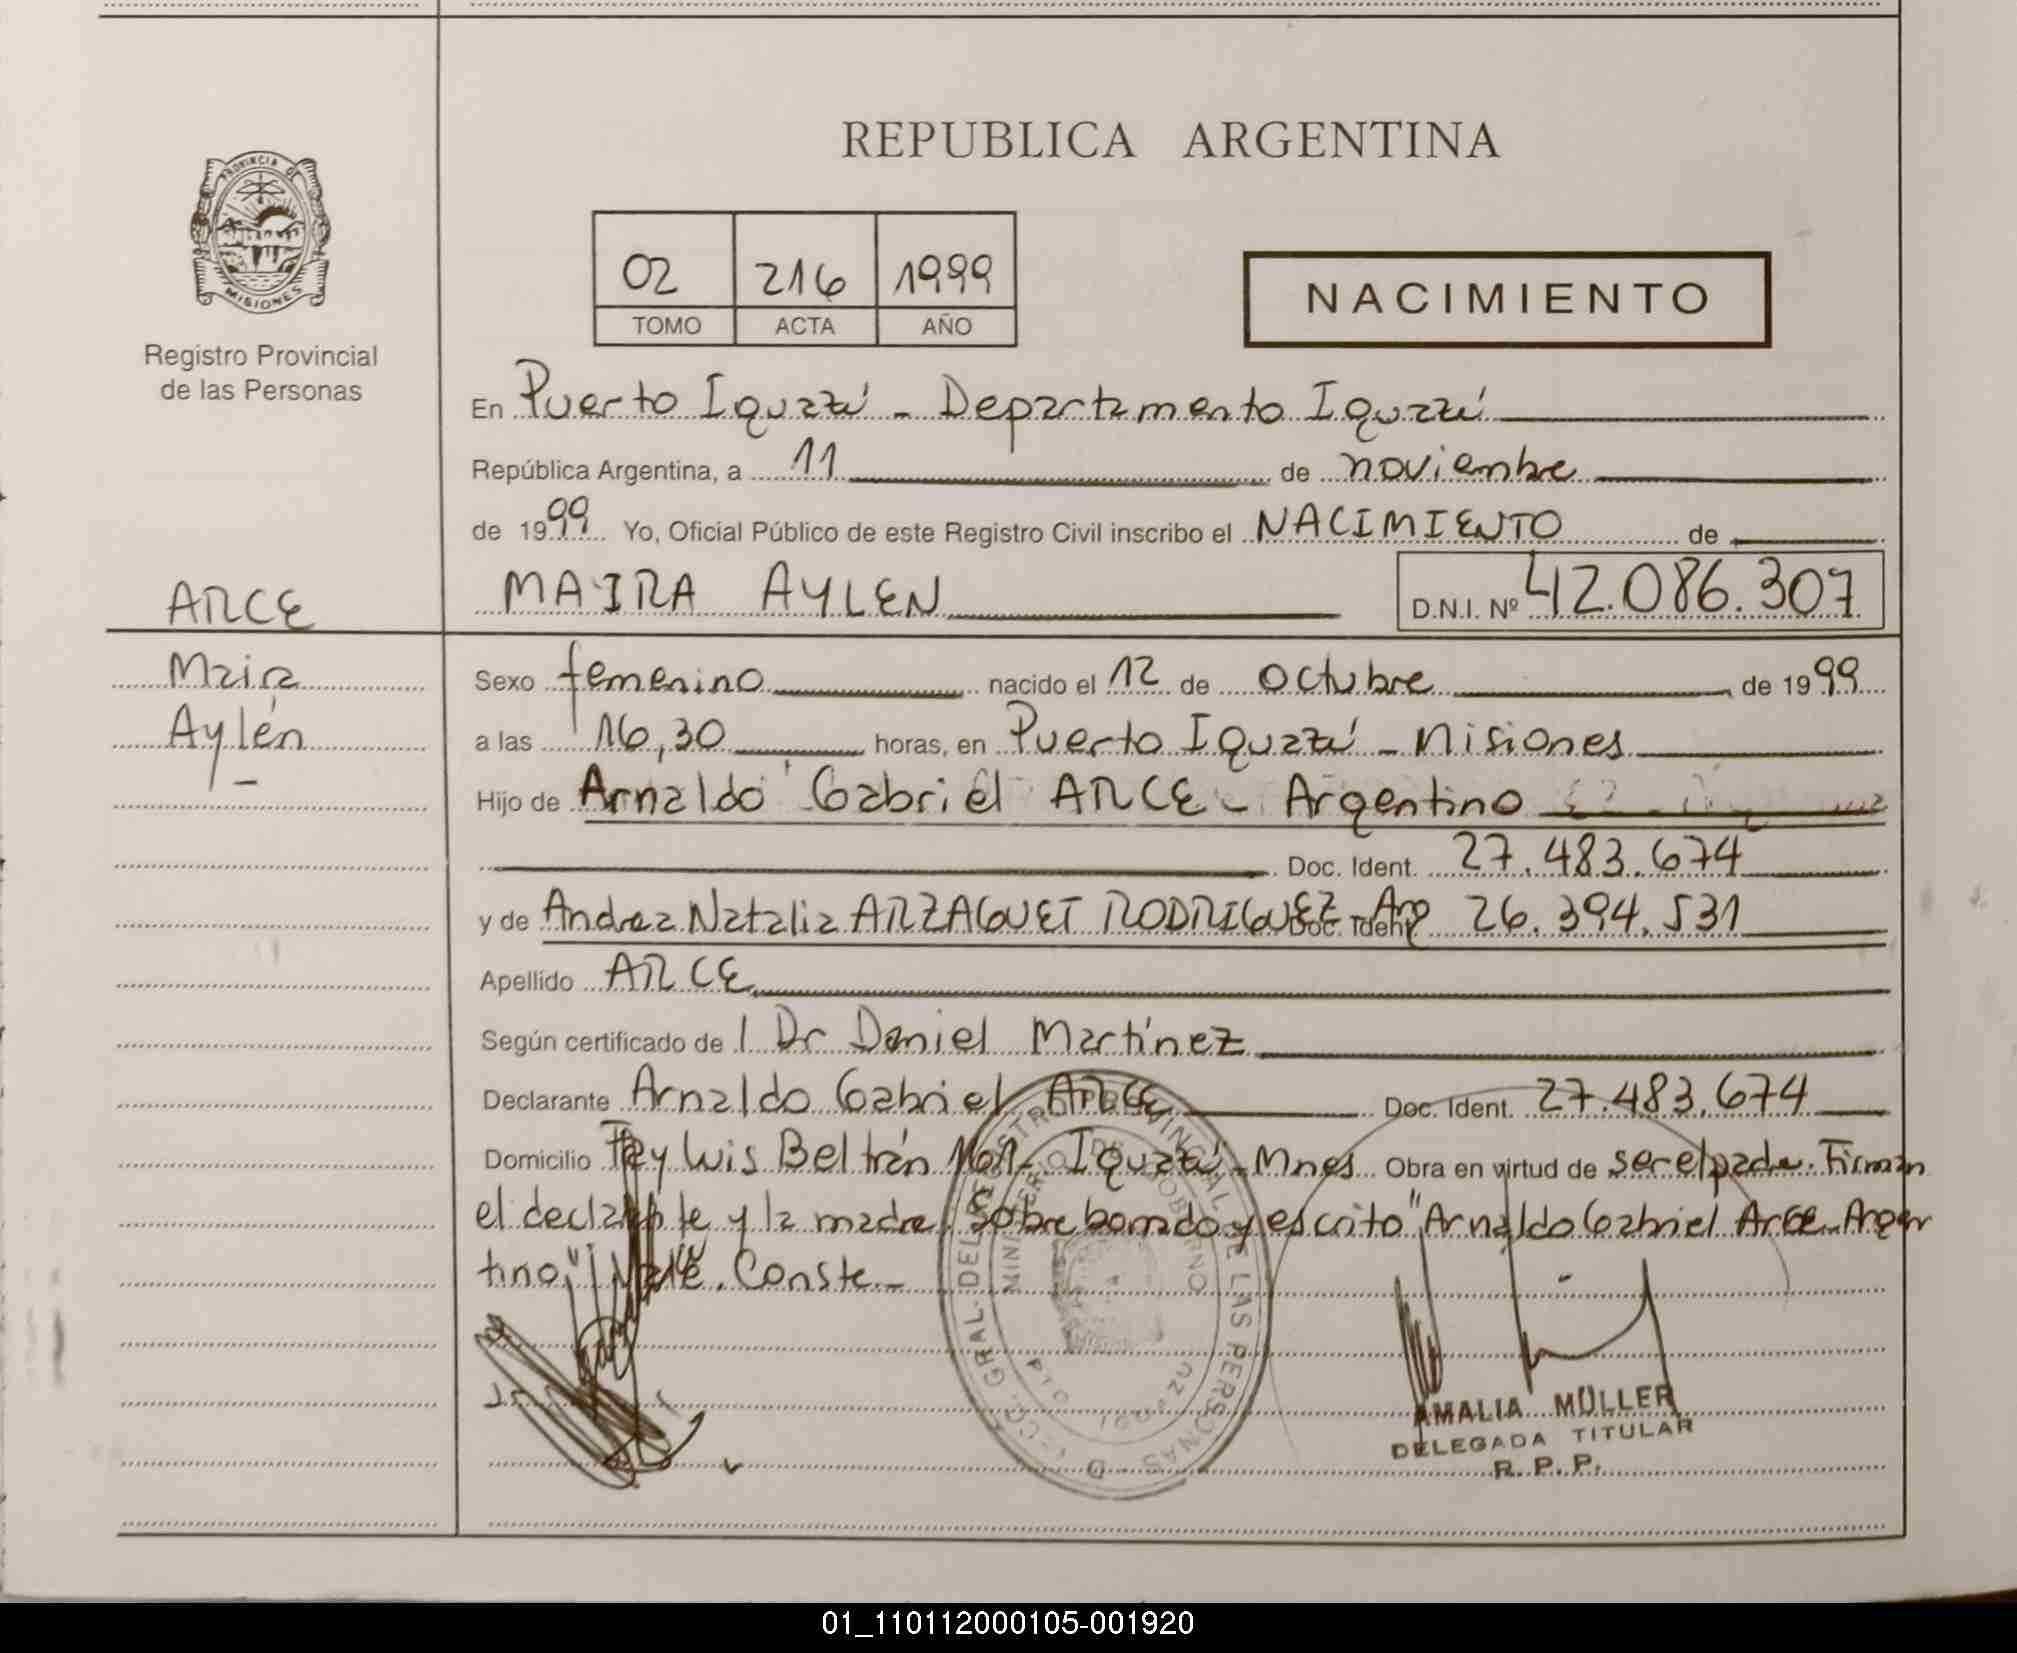 REPUBLICA ARGENTINA
PROVINCIA DE
MISIONES
Registro Provincial
de las Personas
02 216 1999
TOMO ACTA AÑO
NACIMIENTO
En Puerto Iguazú - Departamento Iguazú
República Argentina, a 11 de noviembre
de 1999 Yo, Oficial Público de este Registro Civil inscribo el NACIMIENTO de
MAIRA AYLEN D.N.I. Nº 42.086.307
ARCE
Maira
Aylén
Sexo femenino nacido el 12 de octubre de 1999
a las 16,30 horas, en Puerto Iguazú - Misiones
Hijo de Arnaldo Gabriel ARCE - Argentino
Doc. Ident. 27.483.674
y de Andrea Natalia ARZAGUET RODRIGUEZ - Arg Doc. Ident. 26.394.531
Apellido ARCE
Según certificado de l Dr Daniel Martínez
Declarante Arnaldo Gabriel ARCE Doc. Ident. 27.483.674
Domicilio Fray Luis Beltrán Iguazú - Mnes Obra en virtud de ser el padre. Firman
el declarante y la madre. Sobre borrado y escrito "Arnaldo Gabriel Arce - Argen
tino" Vale. Conste.-
DCC. GRAL. DEL REGISTRO PROVINCIAL DE LAS PERSONAS
MINISTERIO DE GOBIERNO
PTO IGUAZU
AMALIA MÜLLER
DELEGADA TITULAR
R. P. P.
01_110112000105-001920